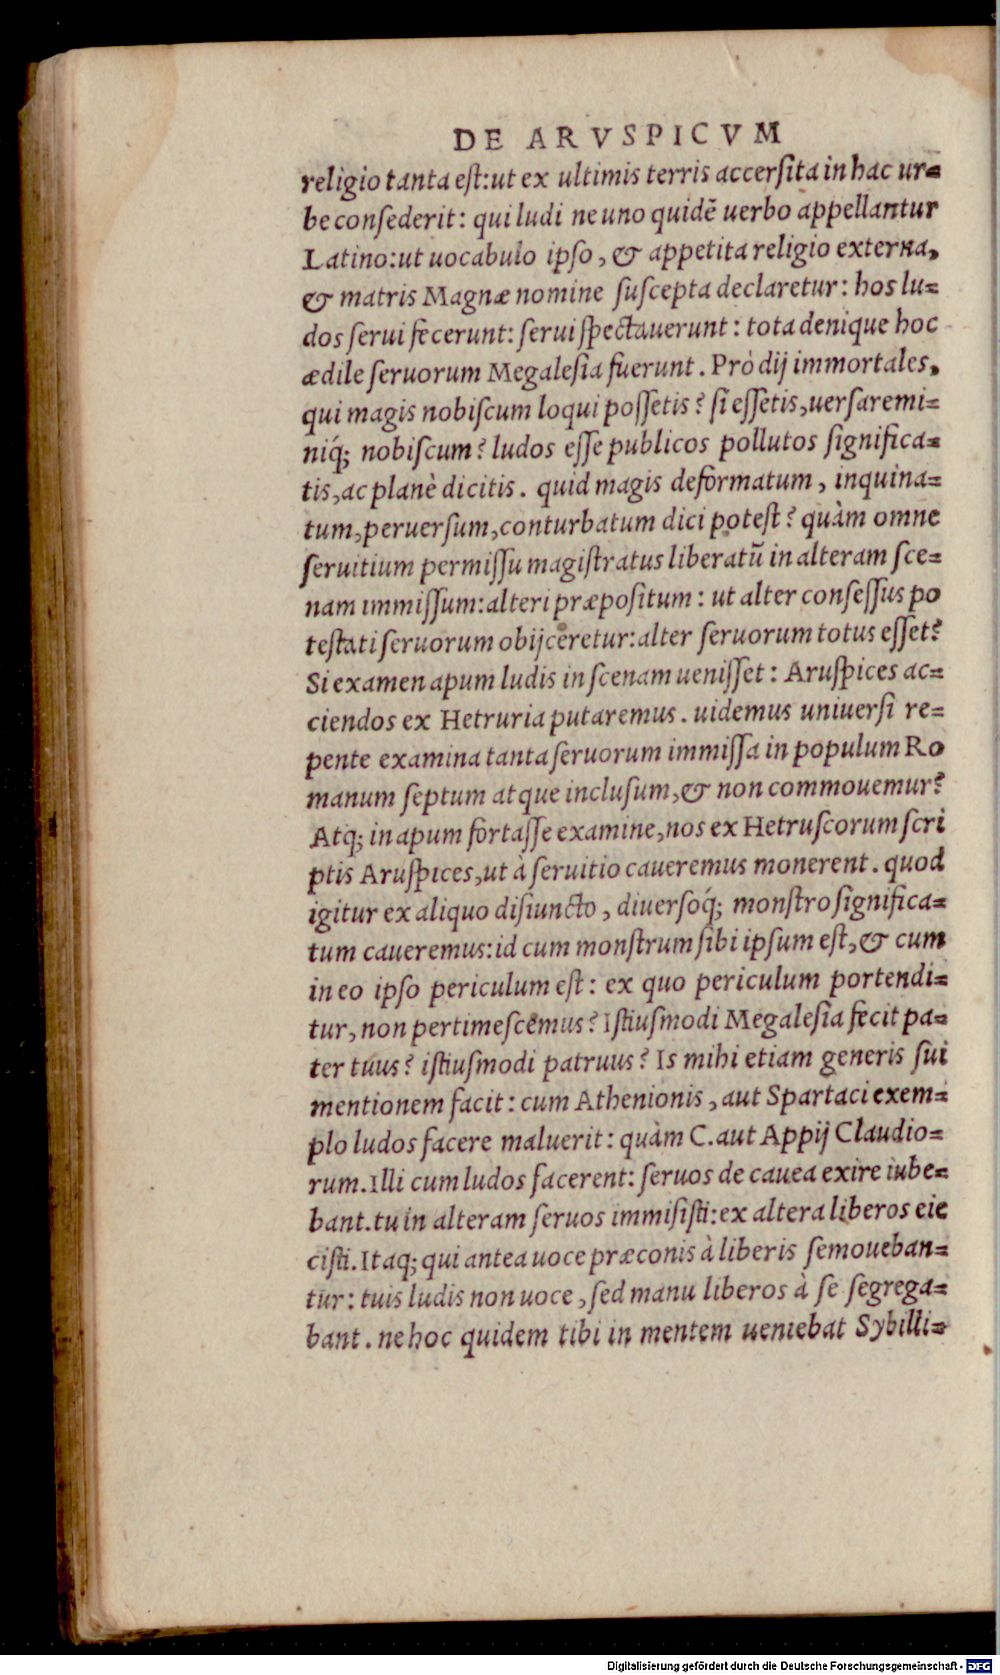 DE ARVSPICVM
religio tanta eſt:ut ex ultimis terris accerſita in hac ur=
be conſederit: qui ludi ne uno quidẽ uerbo appellantur
Latino:ut uocabulo ipſo, & appetita religio externa,
& matris Magnæ nomine ſuſcepta declaretur: hos lu=
dos ſerui fecerunt: ſerui ſpectauerunt: tota denique hoc
ædile ſeruorum Megaleſia fuerunt. Prò dij immortales,
qui magis nobiſcum loqui poſſetis? ſi eſſetis,uerſaremi=
niq́; nobiſcum? ludos eſſe publicos pollutos ſignifica=
tis,ac planè dicitis. quid magis deformatum, inquina=
tum,peruerſum,conturbatum dici poteſt? quàm omne
ſeruitium permiſſu magiſtratus liberatũ in alteram ſce=
nam immiſſum:alteri præpoſitum: ut alter conſeſſus po
teſtati ſeruorum obijceretur:alter ſeruorum totus eſſet?
Si examen apum ludis in ſcenam ueniſſet: Aruſpices ac=
ciendos ex Hetruria putaremus. uidemus uniuerſi re=
pente examina tanta ſeruorum immiſſa in populum Ro
manum ſeptum atque incluſum,& non commouemur?
Atq; in apum fortaſſe examine,nos ex Hetruſcorum ſcri
ptis Aruſpices,ut à ſeruitio caueremus monerent. quod
igitur ex aliquo diſiuncto, diuerſoq́; monſtro ſignifica=
tum caueremus:id cum monſtrum ſibi ipſum eſt,& cum
in eo ipſo periculum eſt: ex quo periculum portendi=
tur, non pertimeſcemus? Iſtiuſmodi Megaleſia fecit pa=
ter tuus? iſtiuſmodi patruus? Is mihi etiam generis ſui
mentionem facit: cum Athenionis, aut Spartaci exem=
plo ludos facere maluerit: quàm C. aut Appij Claudio=
rum. Illi cum ludos facerent: ſeruos de cauea exire iube=
bant. tu in alteram ſeruos immiſiſti:ex altera liberos eie
ciſti. Itaq; qui antea uoce præconis à liberis ſemoueban=
tur: tuis ludis non uoce, ſed manu liberos à ſe ſegrega=
bant. ne hoc quidem tibi in mentem ueniebat Sybilli=
Digitalisierung gefördert durch die Deutsche Forschungsgemeinschaft - DFG